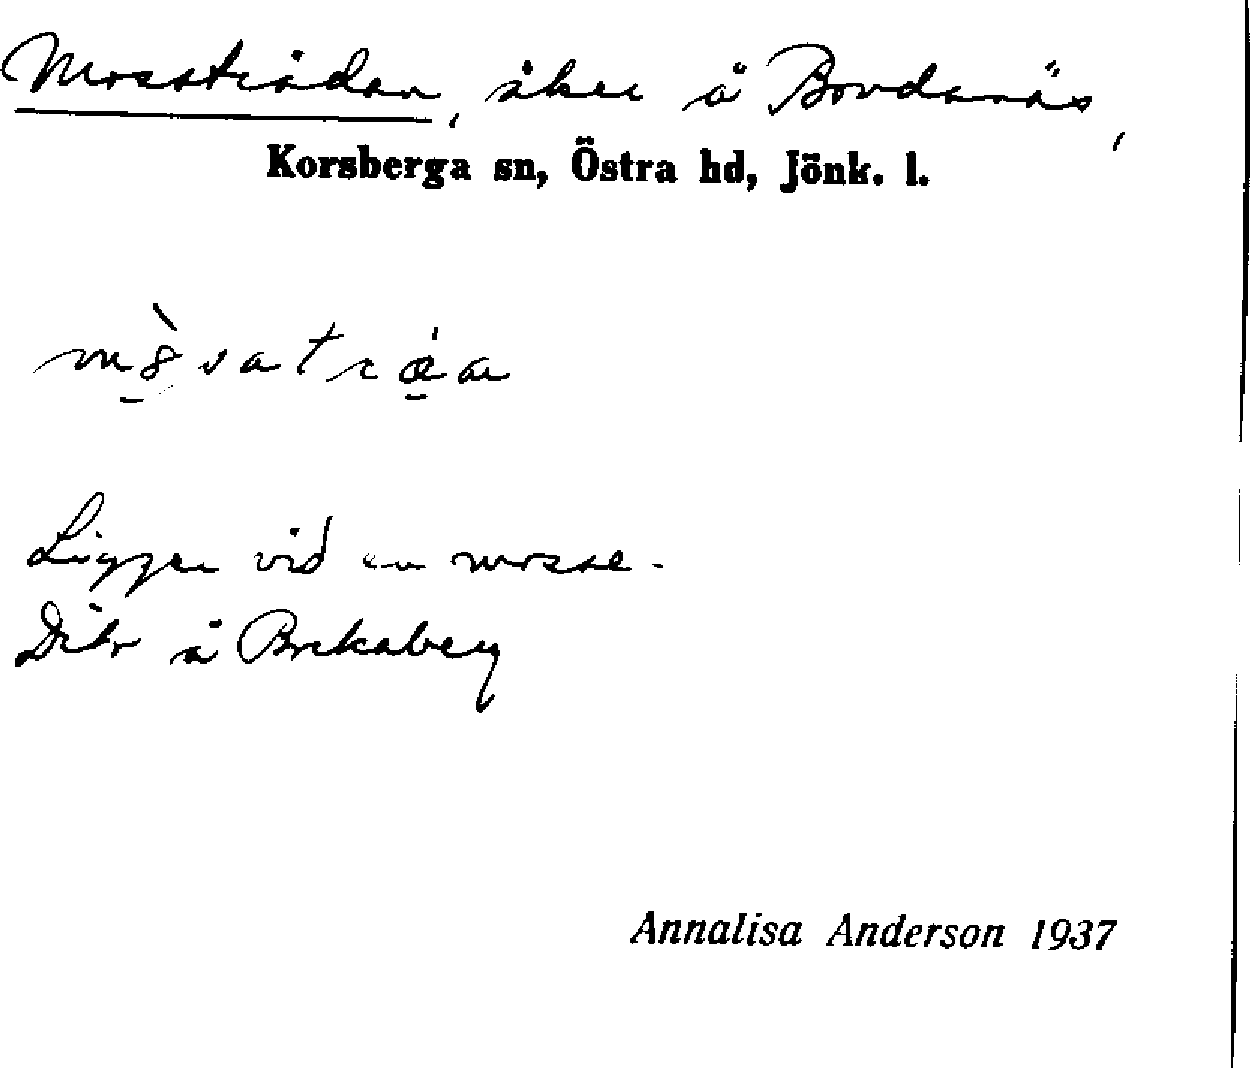 Mossträdan, åker å Bordsnäs,
Korsberga sn, Östra hd, Jönk. l.
Ligger vid en mosse.
Dito å Brekaberg
Annalisa Anderson 1937